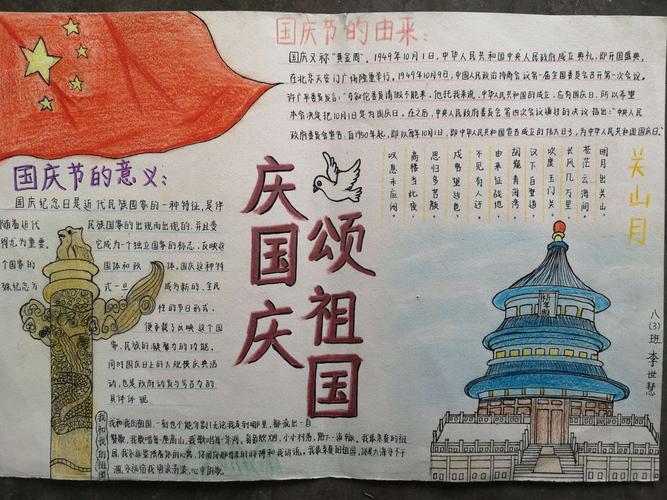 国庆节的由来：
国庆又称"黄金周"。1949年10月1日，中华人民共和国中央人民政府成立典礼，即开国盛典，
在北京天安门广场隆重举行。1949年10月9日，中国人民政协商会议第一届全国委员会召开第一次会议。
许广平委员发言："马叙伦委员请假不能来，他托我来说，中华人民共和国的成立，应有国庆日，所以希望
本会决定把10月1日定为国庆日。在之后，中央人民政府委员会第四次会议通过的决议指出："中央人民
政府委员会宣告：自1950年起，即以每年10月1日，即中华人民共和国宣告成立的伟大日子，为中华人民共和国国庆日。"
国庆节的意义：
国庆纪念日是近代民族国家的一种特征，是伴
随着近代
民族国家的出现而出现的，并且变
得尤为重要。
它成为一个独立国家的标志，反映这
个国家的
国体和政
体，国庆这种特
殊纪念方
式一旦
成为新的、全民
性的节日形式，
便承载了反映这个国
家、民族的凝聚力的功能。
同时国庆日上的大规模庆典活
动，也是政府动员与号召力的
具体体现
庆国庆
颂祖国
关山月
明月出天山，
苍茫云海间。
长风几万里，
吹度玉门关。
汉下白登道，
胡窥青海湾。
由来征战地，
不见有人还。
戍客望边色，
思归多苦颜。
高楼当此夜，
叹息未应闲。
祈年殿
八(3)班 李世慧
我和我的祖国
我和我的祖国，一刻也不能分割！无论我走到哪里，都流出一首
赞歌。我歌唱每一座高山，我歌唱每一条河。袅袅炊烟，小小村落，路上一道辙。我最亲爱的祖